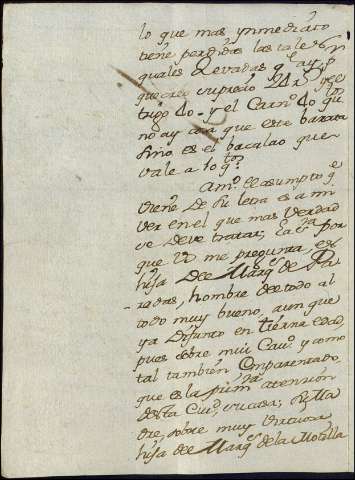 lo que mas ynmediato
tiene perdidas las tales
quales llevadas q.e ay, p.r
que creo su precio 24 R.s
trigo 40 - y el Carn.o 40 q.tos
no ay cosa que este barata
sino es el bacalao que
vale a 10 q.tos
Am.o el asumpto q.e
viene De su letra es a mi
ver en el que mas verdad
se deve tratar; la s.ra por
que Vd me pregunta, es
hija Del Marq.s de Pa
radas, hombre de todo al
todo muy bueno, aunque
ya Difunto en tierna edad,
pues sobre mui Cav.o y como
tal también Emparentado
que es la prim.ra atencion
desta Ciu.d, su casa; su Ma
dre, sobre muy virtuosa
hija del Marq.s de la Motilla